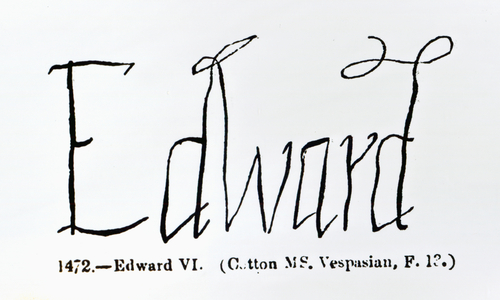 Edward
1472.—Edward VI. (Cotton MS. Vespasian, F.